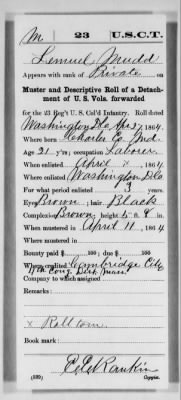 M | 23 | U.S.C.T.
Lemuel Mudd
Appears with rank of Private on
Muster and Descriptive Roll of a Detach-
ment of U. S. Vols. forwarded
for the 23 Reg't U. S. Col'd Infantry. Roll dated
Washington D.C. Apr 27, 1864.
Where born Charles Co. Md.
Age 21 y'rs; occupation Laborer
When enlisted April 7, 1864.
Where enlisted Washington D.C.
For what period enlisted 3 years.
Eyes Brown; hair Black
Complexion Brown; height 5 ft. 9 in.
When mustered in April 11, 1864
Where mustered in
Bounty paid $ 100; due $ 100
Where credited Cambridge City
Cong. Dist. Mass
Company to which assigned
Remarks:
x Roll torn
Book mark:
C. E. Rankin
(339) Copyist.